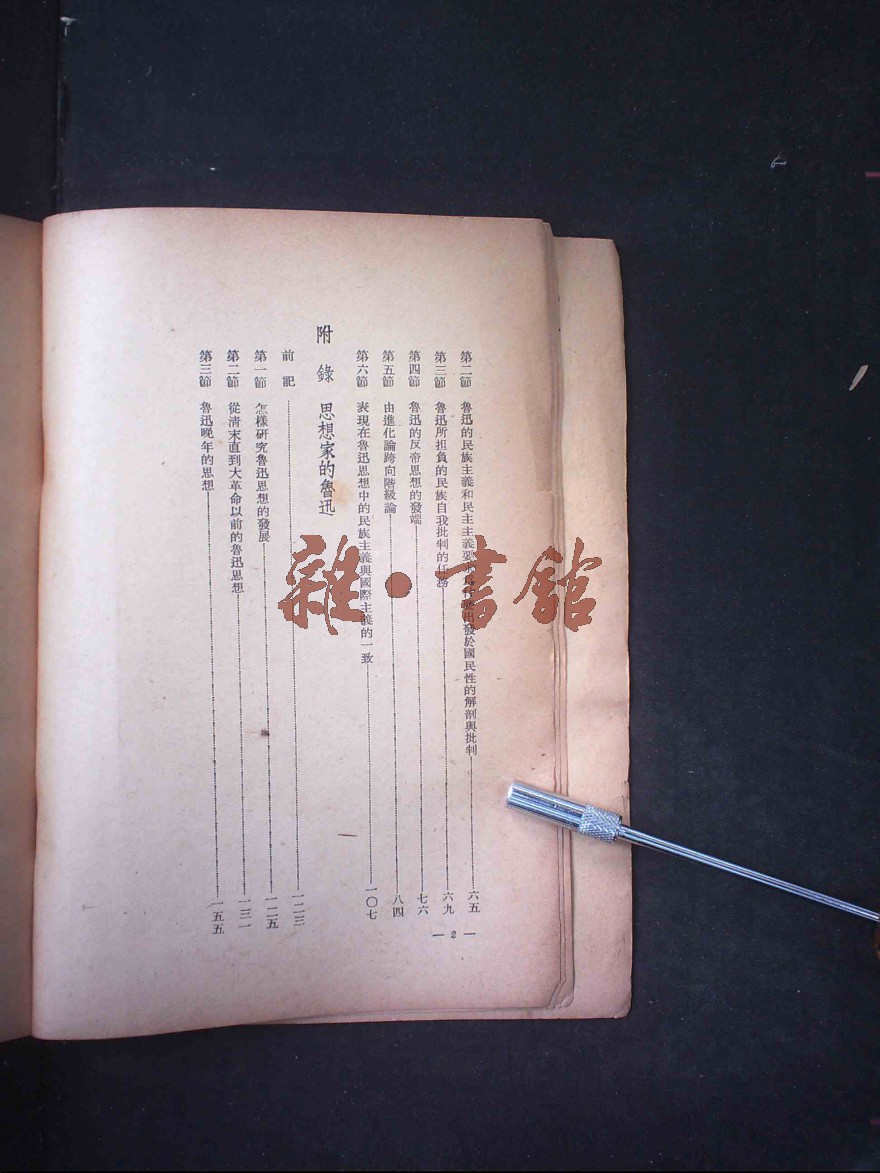 第二節 魯迅的民族主義和民主主義要 出發於國民性的解剖與批判 六五
第三節 魯迅所担負的民族自我批判的任務 六九
第四節 魯迅的反帝思想的發端 七六
第五節 由進化論跨向階級論 八四
第六節 表現在魯迅思想中的民族主義與國際主義的一致 一〇七
附錄 思想家的魯迅
前記 一二三
第一節 怎樣研究魯迅思想的發展 一二五
第二節 從清末直到大革命以前的魯迅思想 一三一
第三節 魯迅晚年的思想 一五五
— 2 —
雜·書館